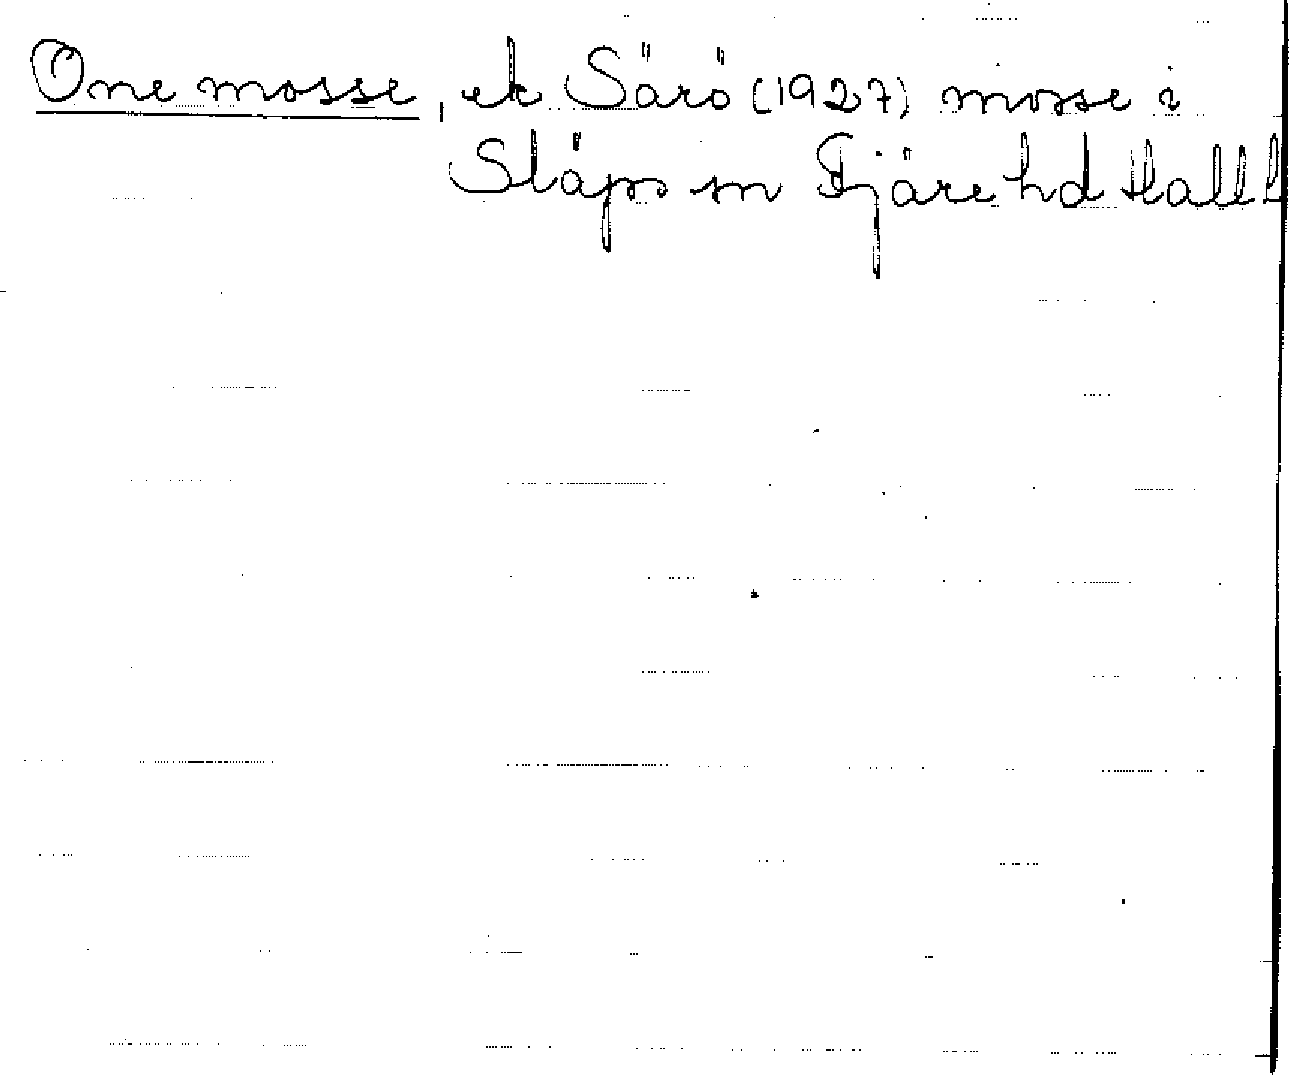 One mosse, ek Särö (1927) mosse i
Släps sn Fjäre hd Hall